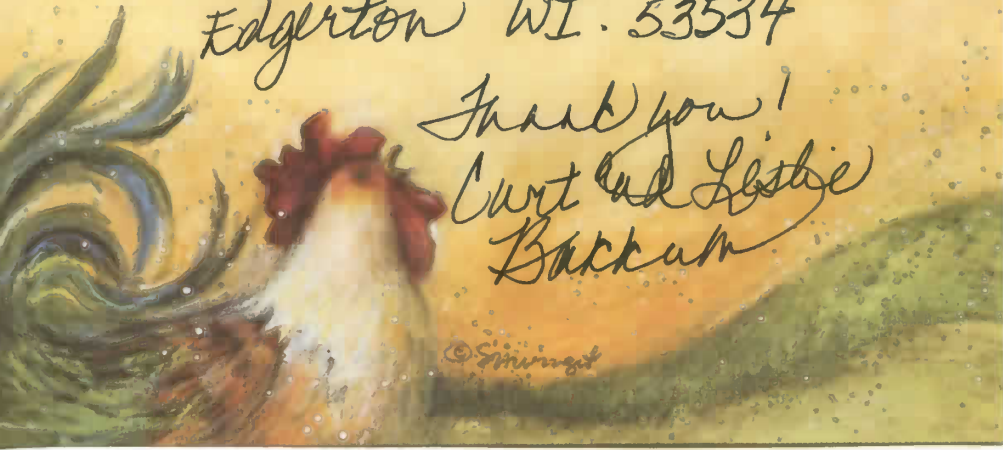 Edgerton WI. 53534
Thank you!
Curt and Leslie
Bakkum
©